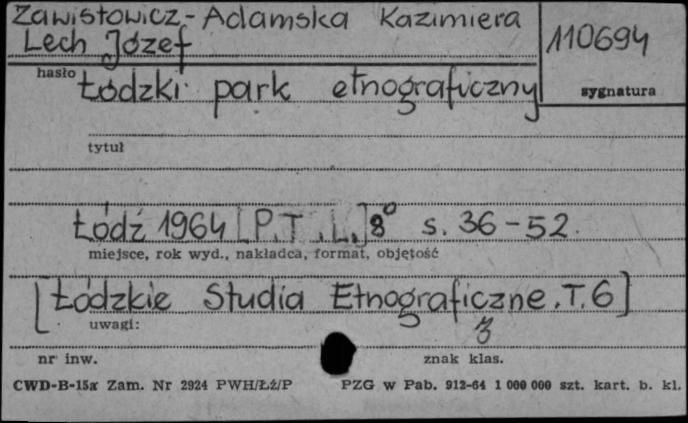 Zawistowicz-Adamska Kazimiera
Lech Józef
110694
hasło
Łódzki park etnograficzny
sygnatura
tytuł
Łódź 1964 [P.T.L.] 8° s. 36-52.
miejsce, rok wyd., nakładca, format, objętość
[Łódzkie Studia Etnograficzne. T. 6]
uwagi:
z
nr inw.
znak klas.
CWD-B-15a Zam. Nr 2924 PWH/Łź/P
PZG w Pab. 912-64 1 000 000 szt. kart. b. kl.